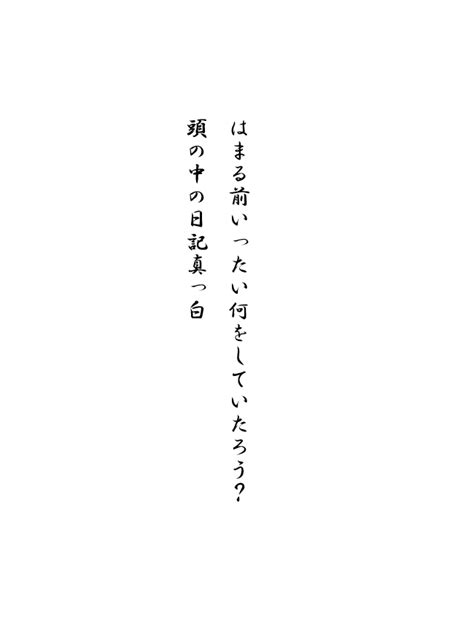 はまる前いったい何をしていたろう?
頭の中の日記真っ白